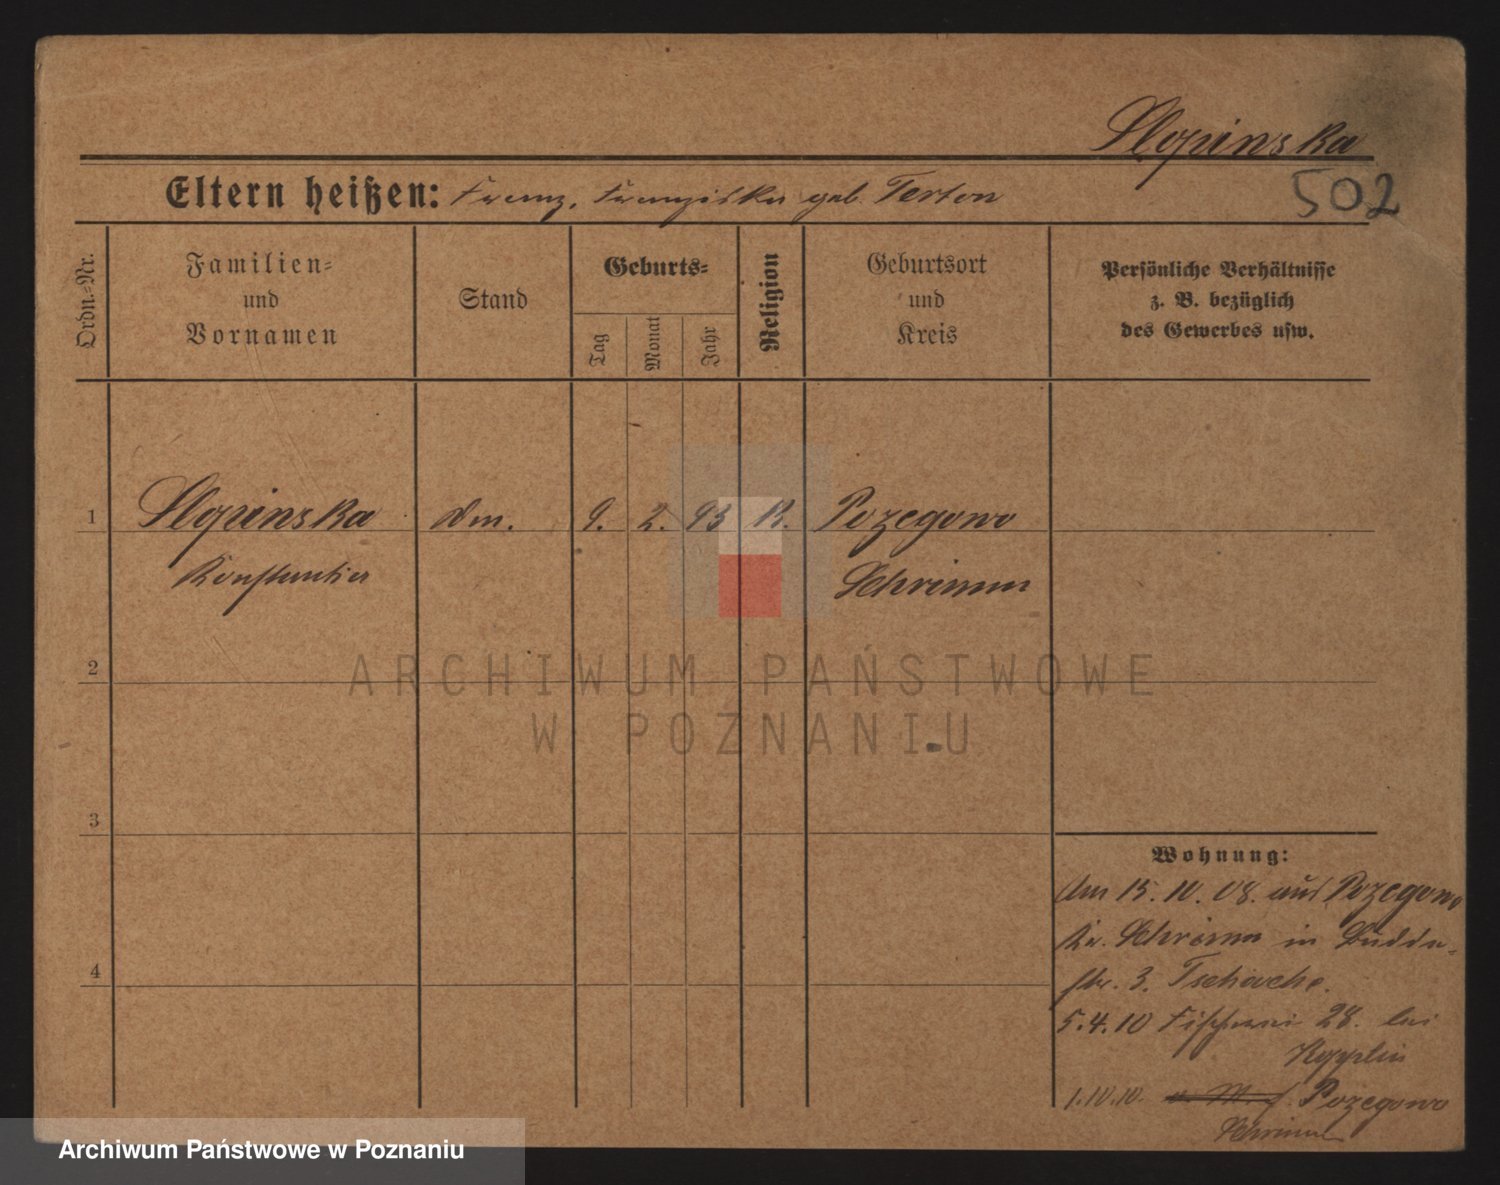 Slopinska
502
Eltern heißen: Franz, Franziska geb. Terton
Ordn.=Nr.
Familien=
und
Vornamen
Stand
Geburts=
Tag
Monat
Jahr
Religion
Geburtsort
und
Kreis
Persönliche Verhältnisse
z. B. bezüglich
des Gewerbes usw.
1
Slopinska
9. 2. 93 K. Pozegowo
Schrimm
2
ARCHIWUM PAŃSTWOWE
W POZNANIU
3
4
Wohnung:
Am 15.10.08. aus Pozegowo
Kr. Schrimm in
str. 3.
5.4.10 Fischerei 28. bei
1.10.10. Pozegowo
Schrimm
Archiwum Państwowe w Poznaniu